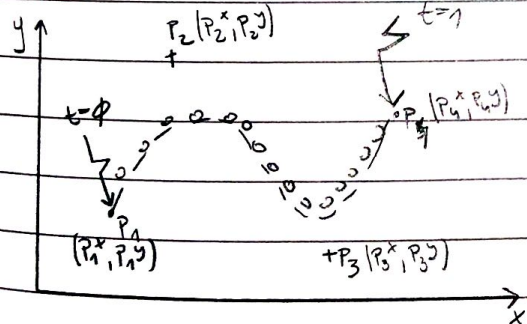 y
P2 (P2^x, P2^y)
t=1
t=0
P4 (P4^x, P4^y)
P1
(P1^x, P1^y)
P3 (P3^x, P3^y)
x